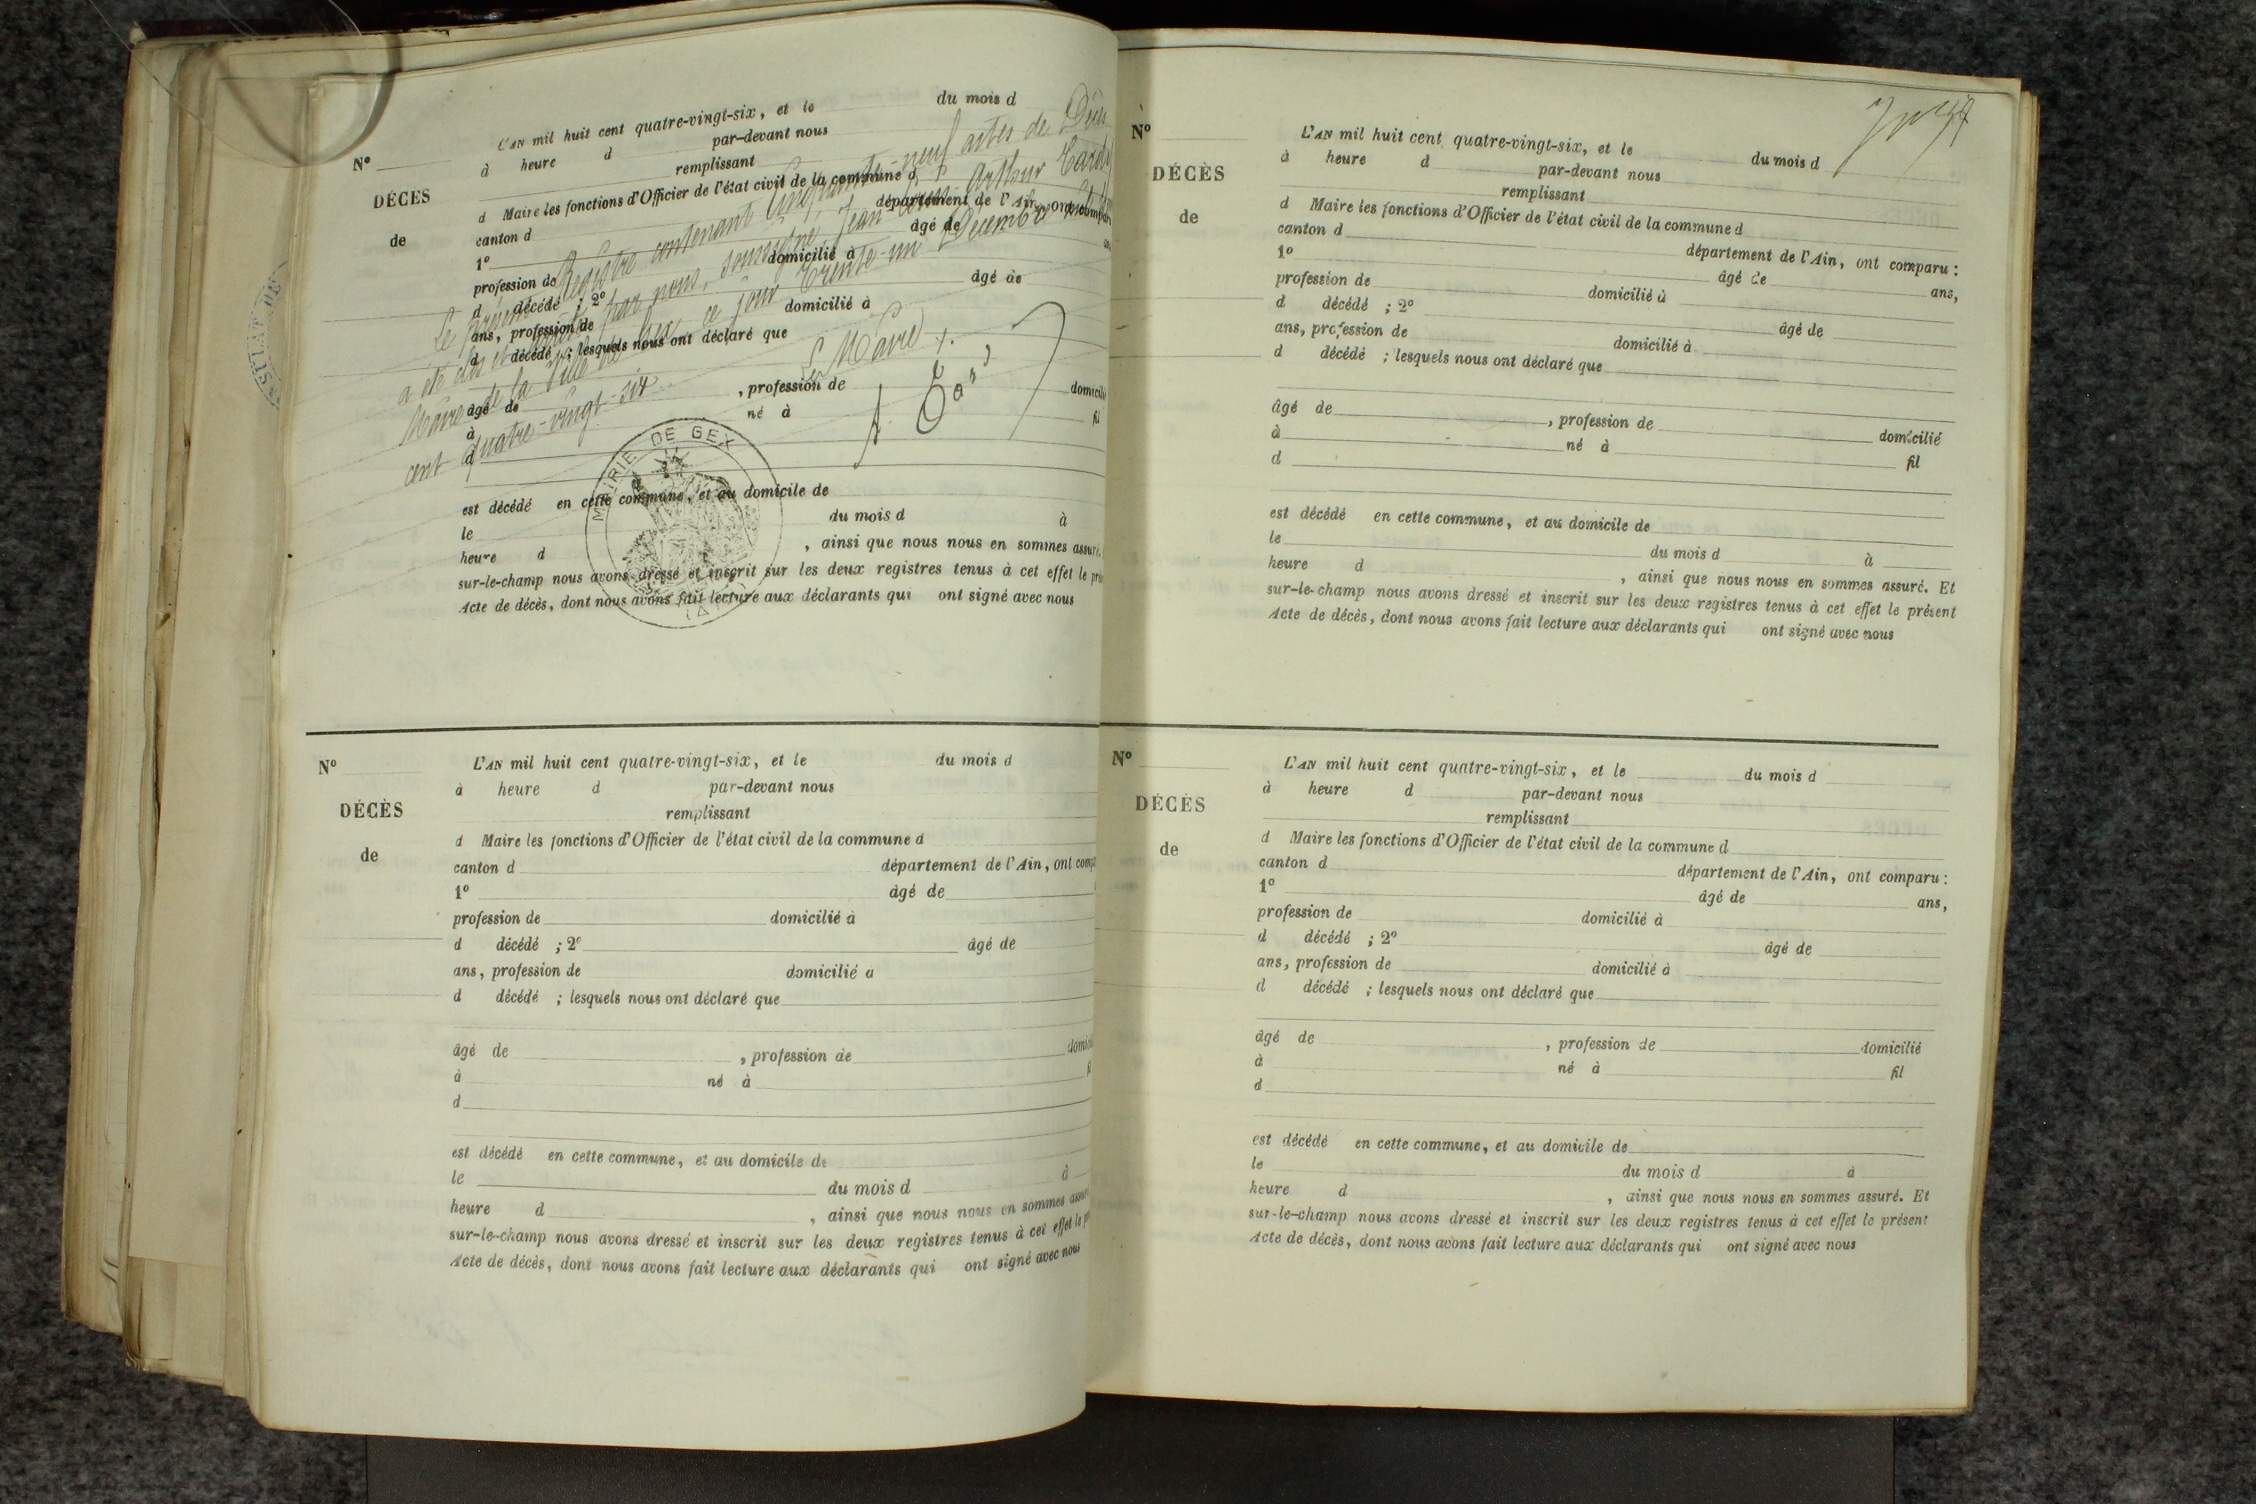 L'AN mil huit cent quatre-vingt-six, et le du mois d
à heure d par-devant nous
N° remplissant
DÉCÈS
de
d Maire les fonctions d'Officier de l'état civil de la commune d
canton d département de l'Ain, ont compar
1° âgé de
profession de domicilié à
d décédé ; 2° âgé de
ans, profession de domicilié à
d décédé ; lesquels nous ont déclaré que
âgé de , profession de domicilié
à né à fil
d
est décédé en cette commune, et au domicile de
le du mois d à
heure d , ainsi que nous nous en sommes assuré.
sur-le-champ nous avons dressé et inscrit sur les deux registres tenus à cet effet le pré
Acte de décès, dont nous avons fait lecture aux déclarants qui ont signé avec nous
Le présent Registre contenant Cinquante-neuf actes de Décès
a été clos et par nous, soussigné, Jean Arthur
Maire de la Ville de Gex ce jour Trente-un Décembre
cent quatre-vingt-six
Le Maire
MAIRIE DE GEX
(AIN)
N° L'AN mil huit cent quatre-vingt-six, et le du mois d
à heure d par-devant nous
DÉCÈS remplissant
de
d Maire les fonctions d'Officier de l'état civil de la commune d
canton d département de l'Ain, ont comp
1° âgé de
profession de domicilié à
d décédé ; 2° âgé de
ans, profession de domicilié a
d décédé ; lesquels nous ont déclaré que
âgé de , profession de domici
à né à fi
d
est décédé en cette commune, et au domicile de
le du mois d à
heure d , ainsi que nous nous en sommes assur
sur-le-champ nous avons dressé et inscrit sur les deux registres tenus à cet effet le p
Acte de décès, dont nous avons fait lecture aux déclarants qui ont signé avec nous
N° L'AN mil huit cent quatre-vingt-six, et le du mois d
à heure d par-devant nous
DÉCÈS remplissant
de
d Maire les fonctions d'Officier de l'état civil de la commune d
canton d département de l'Ain, ont comparu :
1° âgé de ans,
profession de domicilié à
d décédé ; 2° âgé de
ans, profession de domicilié à
d décédé ; lesquels nous ont déclaré que
âgé de , profession de domicilié
à né à fil
d
est décédé en cette commune, et au domicile de
le du mois d à
heure d , ainsi que nous nous en sommes assuré. Et
sur-le-champ nous avons dressé et inscrit sur les deux registres tenus à cet effet le présent
Acte de décès, dont nous avons fait lecture aux déclarants qui ont signé avec nous
N° L'AN mil huit cent quatre-vingt-six, et le du mois d
à heure d par-devant nous
DÉCÈS remplissant
de
d Maire les fonctions d'Officier de l'état civil de la commune d
canton d département de l'Ain, ont comparu :
1° âgé de ans,
profession de domicilié à
d décédé ; 2° âgé de
ans, profession de domicilié à
d décédé ; lesquels nous ont déclaré que
âgé de , profession de domicilié
à né à fil
d
est décédé en cette commune, et au domicile de
le du mois d à
heure d , ainsi que nous nous en sommes assuré. Et
sur-le-champ nous avons dressé et inscrit sur les deux registres tenus à cet effet le présent
Acte de décès, dont nous avons fait lecture aux déclarants qui ont signé avec nous